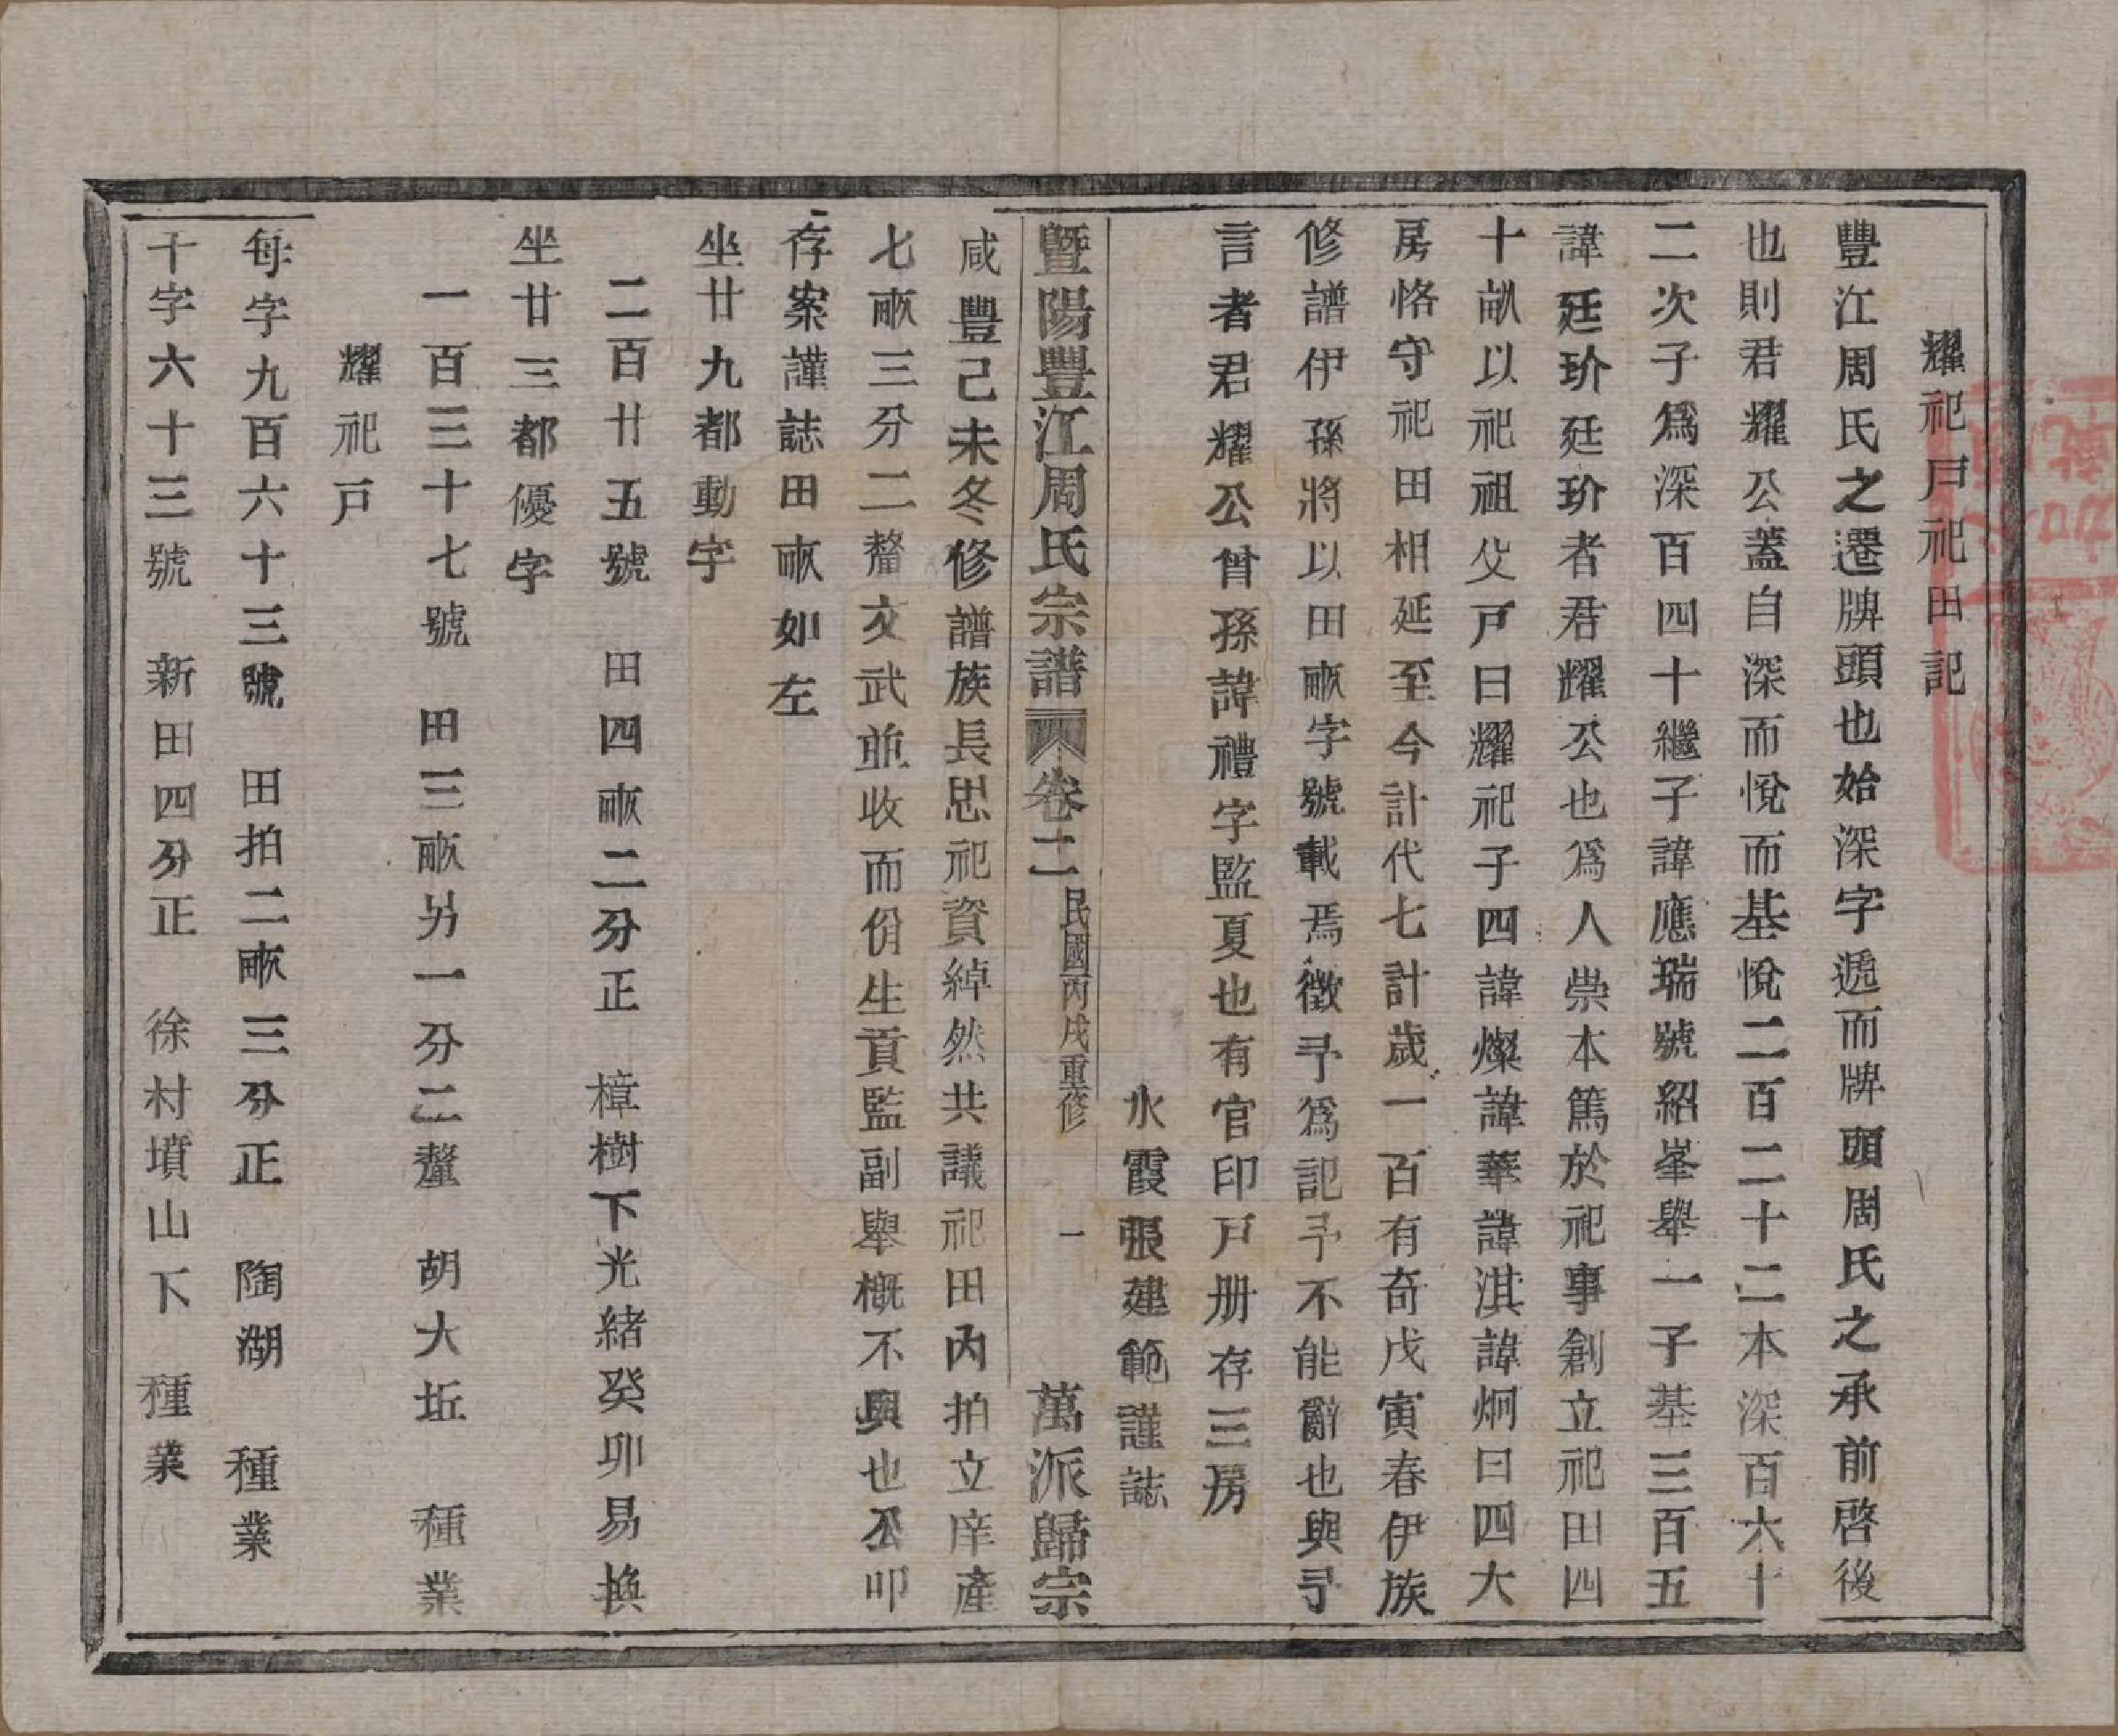 耀祀戸祀田記
豐江周氏之遷牌頭也始深字遞而牌頭周氏之承前啓後
也則君耀公蓋自深而悅而基悅二百二十二本深百六十
二次子爲深百四十繼子諱應瑞號紹峯舉一子基三百五
諱廷玠廷玠者君耀公也爲人崇本篤於祀事創立祀田四
十畝以祀祖父戸曰耀祀子四諱燦諱華諱淇諱炯曰四大
房恪守祀田相延至今計代七計歲一百有奇戊寅春伊族
修譜伊孫將以田畝字號載焉徵予爲記予不能辭也與予
言者君耀公曾孫諱禮字監夏也有官印戸册存三房
氷霞張建範謹誌
暨陽豐江周氏宗譜 卷二 民國丙戌重修 一 萬派歸宗
咸豐己未冬修譜族長思祀資綽然共議祀田內拍立庠產
七畝三分二釐文武並收而份生貢監副舉概不與也公叩
存案謹誌田畝如左
坐廿九都動字
二百廿五號 田四畝二分正 樟樹下光緒癸卯易換
坐廿三都優字
一百三十七號 田三畝另一分二釐 胡大坵 種業
耀祀戸
每字九百六十三號 田拍二畝三分正 陶湖 種業
千字六十三號 新田四分正 徐村墳山下 種業